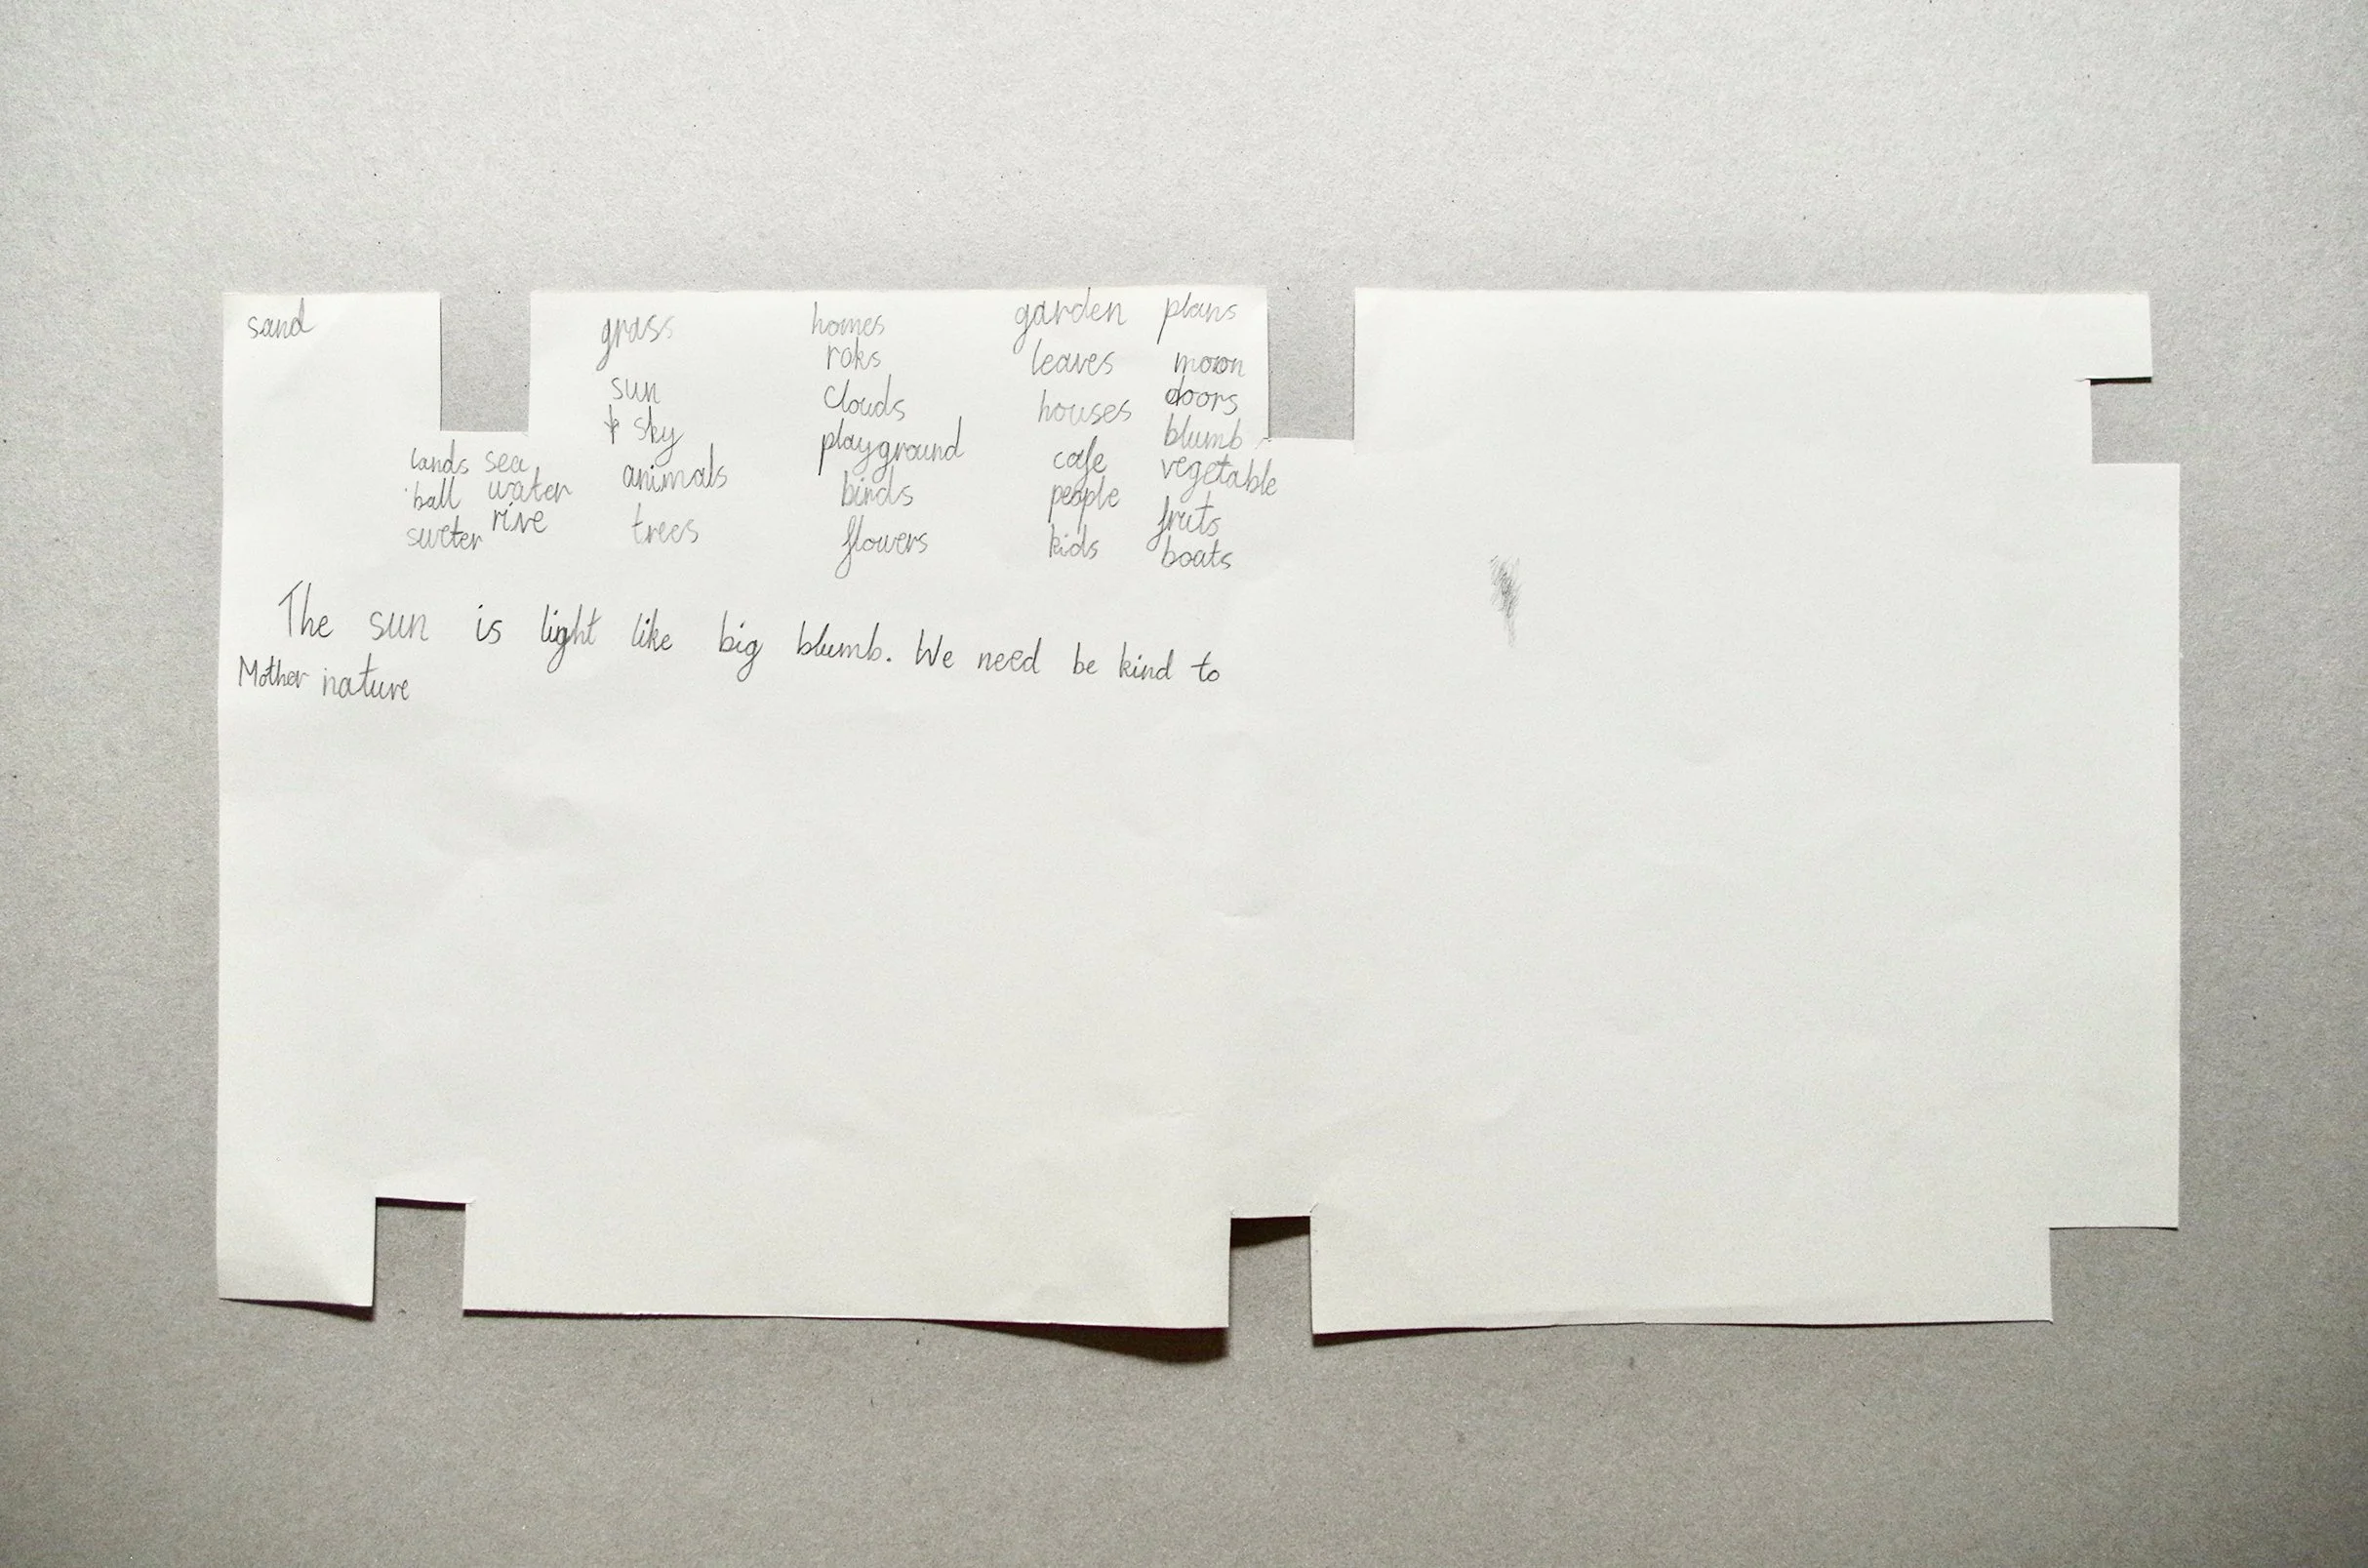 sand
grass
sun
sky
animals
trees
homes
roks
clouds
playground
birds
flowers
garden
leaves
houses
cafe
people
kids
plans
moon
doors
blumb
vegetable
fruts
boats
lands
ball
sweter
sea
water
rive
The sun is light like big blumb. We need be kind to
Mother nature